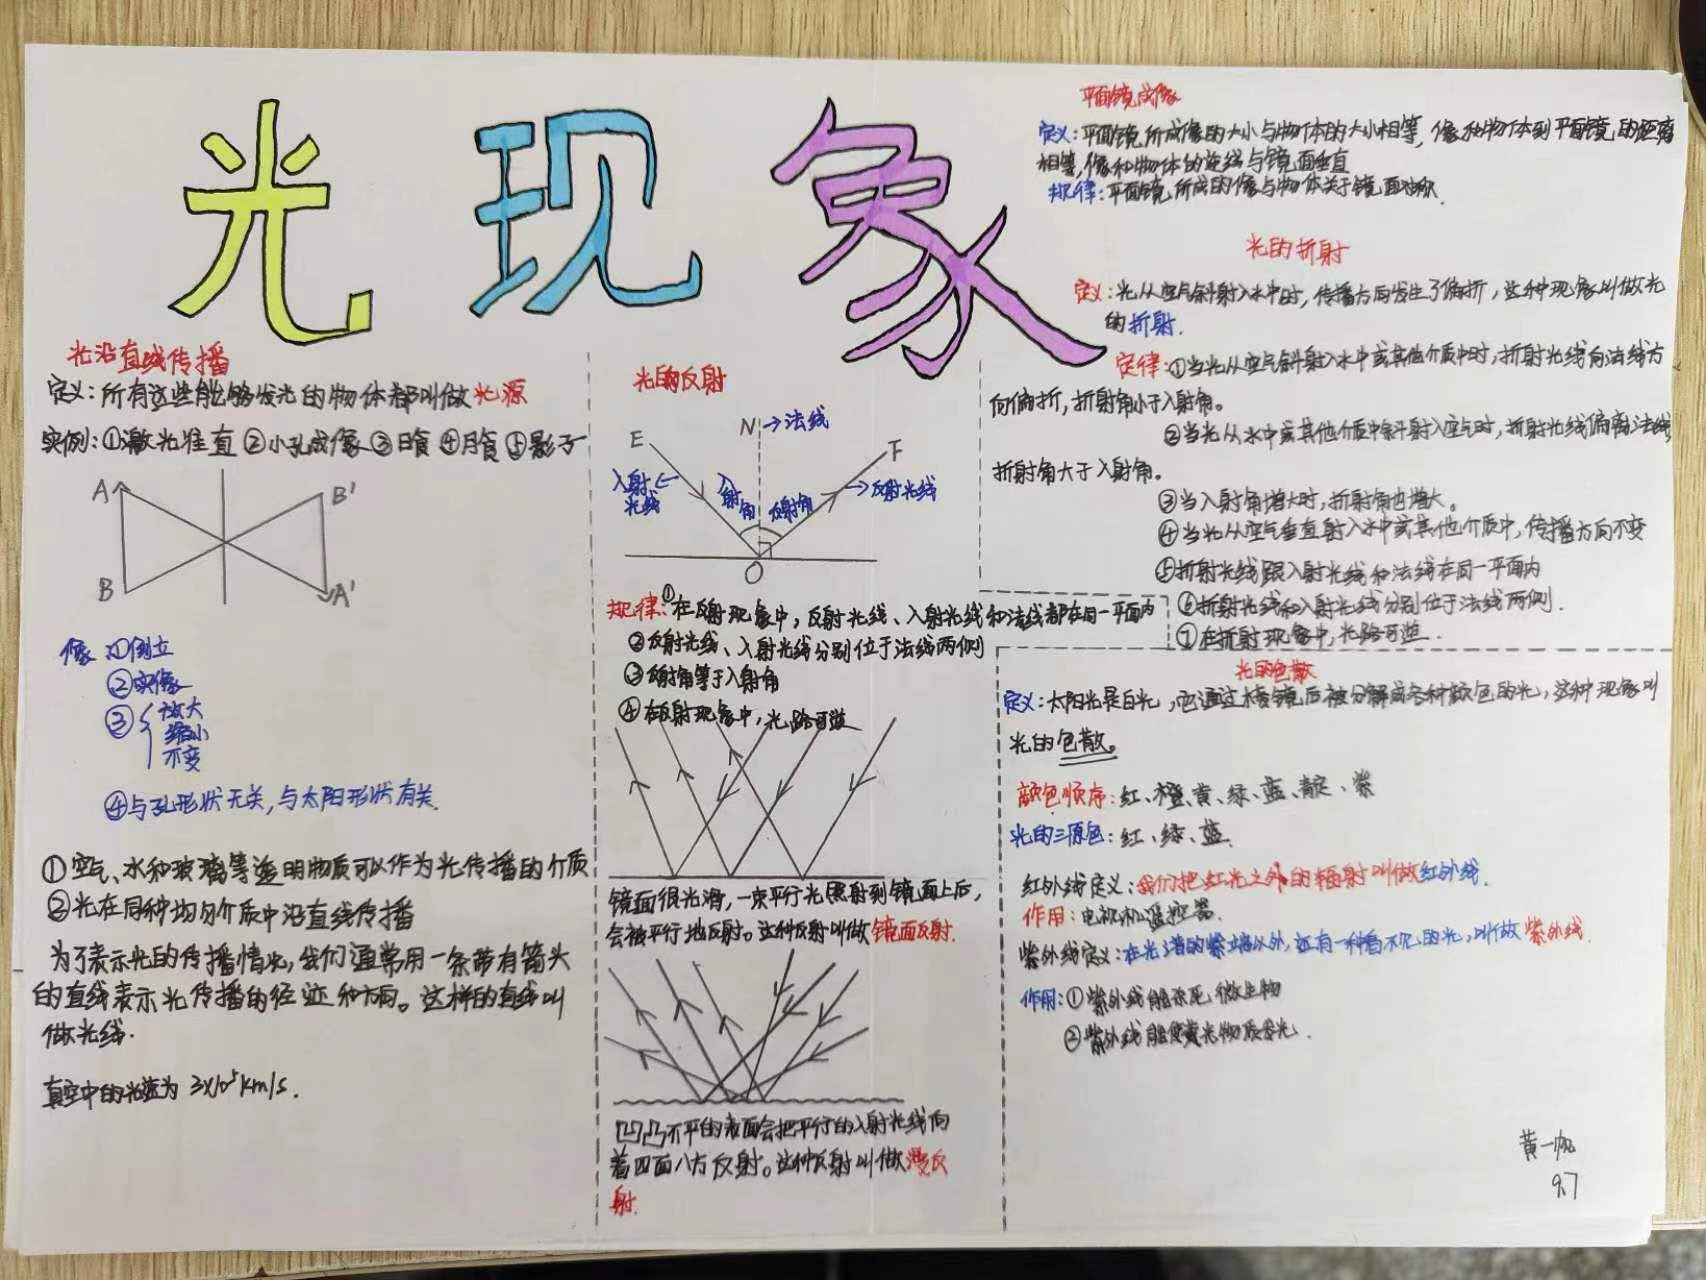 光现象
光沿直线传播
定义：所有这些能够发光的物体都叫做光源
实例：①激光准直 ②小孔成像 ③日食 ④月食 ⑤影子
A
B'
B
A'
像：①倒立
②实像
③放大
缩小
不变
④与孔形状无关，与太阳形状有关.
①空气、水和玻璃等透明物质可以作为光传播的介质
②光在同种均匀介质中沿直线传播
为了表示光的传播情况，我们通常用一条带有箭头
的直线表示光传播的径迹和方向。这样的直线叫
做光线.
真空中的光速为 3×10⁵km/s.
光的反射
N→法线
E
F
入射
光线
入射角
反射角
反射光线
O
规律：①在反射现象中，反射光线、入射光线和法线都在同一平面内
②反射光线、入射光线分别位于法线两侧
③反射角等于入射角
④在反射现象中，光路可逆
镜面很光滑，一束平行光照射到镜面上后，
会被平行地反射。这种反射叫做镜面反射.
凹凸不平的表面会把平行的入射光线向
着四面八方反射。这种反射叫做漫反
射.
平面镜成像
定义：平面镜所成像的大小与物体的大小相等，像和物体到平面镜的距离
相等，像和物体的连线与镜面垂直
规律：平面镜所成的像与物体关于镜面对称.
光的折射
定义：光从空气斜射入水中时，传播方向发生了偏折，这种现象叫做光
的折射.
定律：①当光从空气斜射入水中或其他介质中时，折射光线向法线方
向偏折，折射角小于入射角。
②当光从水中或其他介质中斜射入空气时，折射光线偏离法线
折射角大于入射角。
③当入射角增大时，折射角也增大。
④当光从空气垂直射入水中或其他介质中，传播方向不变
⑤折射光线跟入射光线和法线在同一平面内
⑥折射光线和入射光线分别位于法线两侧.
⑦在折射现象中，光路可逆.
光的色散
定义：太阳光是白光，它通过棱镜后被分解成各种颜色的光，这种现象叫
光的色散。
颜色顺序：红、橙、黄、绿、蓝、靛、紫
光的三原色：红、绿、蓝.
红外线定义：我们把红光之外的辐射叫做红外线.
作用：电视机遥控器.
紫外线定义：在光谱的紫端以外，还有一种看不见的光，叫做紫外线.
作用：①紫外线能杀死微生物
②紫外线能使荧光物质发光.
黄一帆
9.7